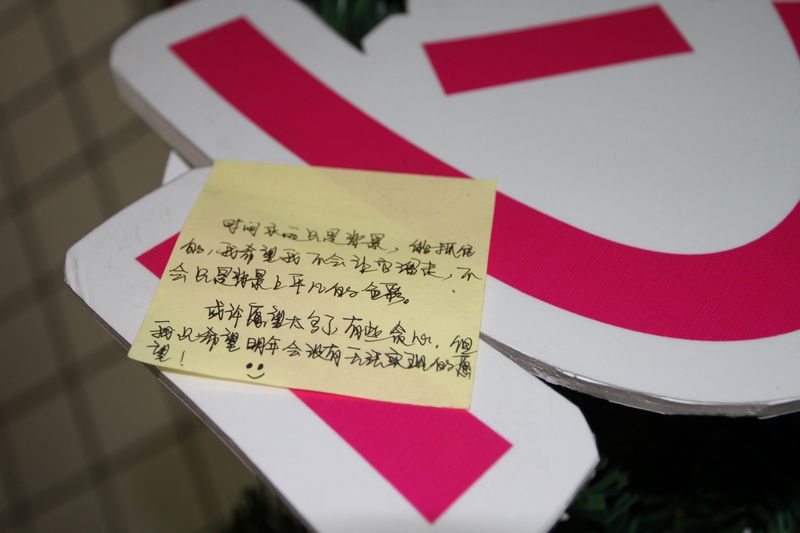 时间永远只是背景，能抓住
的，我希望我不会让它溜走，不
会只是背景上平凡的色彩。
或许愿望太多了有些贪心，但
我只希望明年会没有无法实现的愿
望！